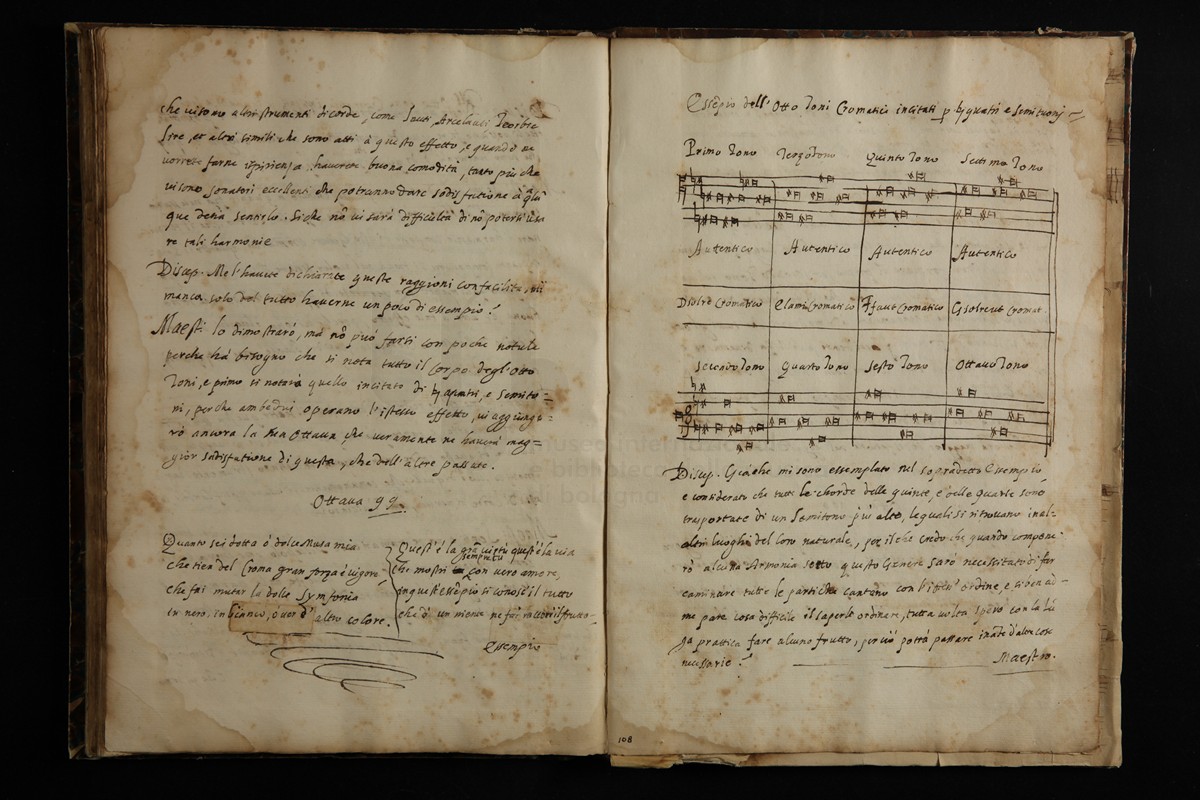 che vi sono altri strumenti di corde, come Leuti, Arcileuti Teorbe
Lire, et altri simili che sono atti à questo effetto, e quando ne
vorrete farne isperienza haverete buona comodità, tanto più che
vi sono sonatori eccellenti che potranno dare sodisfatione à
que desia sentirlo. Si che nõ vi sarà difficultà di nõ potersi usa
re tali harmonie
Discep. Me l'havete dichiarate queste raggioni con facilità, mi
manca solo del tutto haverne un poco di essempio?
Maest: lo dimostrarò, mà nõ può farsi con poche notule
perche hà bisogno che si nota tutto il Corpo degl'Otto
Toni, e primo si notarà quello incitato di e Semito=
ni, perche ambedui operano l'istesso effetto, vi aggiunge=
rò ancora la mia Ottava che veramente ne haverà mag=
gior sodisfatione di questa, che dell'altre passate.
Ottava 99.
Quanto sei dotta ò dolce Musa mia
che tien del Croma gran forza è vigore
che fai mutar la dolce Symfonia
in nero, in bianco, ò ver d'altro colore.
Quest'è la grã virtù quest'è la via
che mostri sempre tu con vero amore,
in quest'essẽpio si conosc'il tutto
che d'un
Essempio
Essẽpio dell'Otto Toni Cromatici incitati p ♮quatri e Semituonj
Primo Tono Terzo Tono Quinto Tono Settimo Tono
Autentico Autentico Autentico Autentico
Dsolre Cromatico Elami Cromatico Ffaut Cromatico Gsolreut Cromat
Secondo Tono Quarto Tono Sesto Tono Ottavo Tono
Discep. Già che mi sono essemplato nel sopradetto Essempio
e considerato che tutte le chorde delle quinte, e delle quarte sono
trasportate di un Semitono più alto, le quali si ritrovano in al=
altri luoghi del loro naturale, per il che credo che quando compone
rò alcuna Armonia sotto questo Genere sarò necessitato di far
caminare tutte le particelle cantano con l'istess'ordine, e si ben ad=
me pare cosa difficile il saperle ordinare, tutta volta spero con la lũ
ga prattica fare alcuno frutto, per ciò potrà passare inãte d'altre cose
necessarie?
Maestro.
108